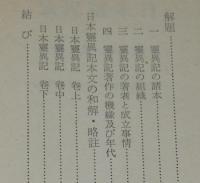 解題
一 靈異記の諸本
二 靈異記の組織
三 靈異記の著者と成立事情
四 靈異記著作の機緣及び年代
日本靈異記本文の和解・略註
日本靈異記 卷上
日本靈異記 卷中
日本靈異記 卷下
結び